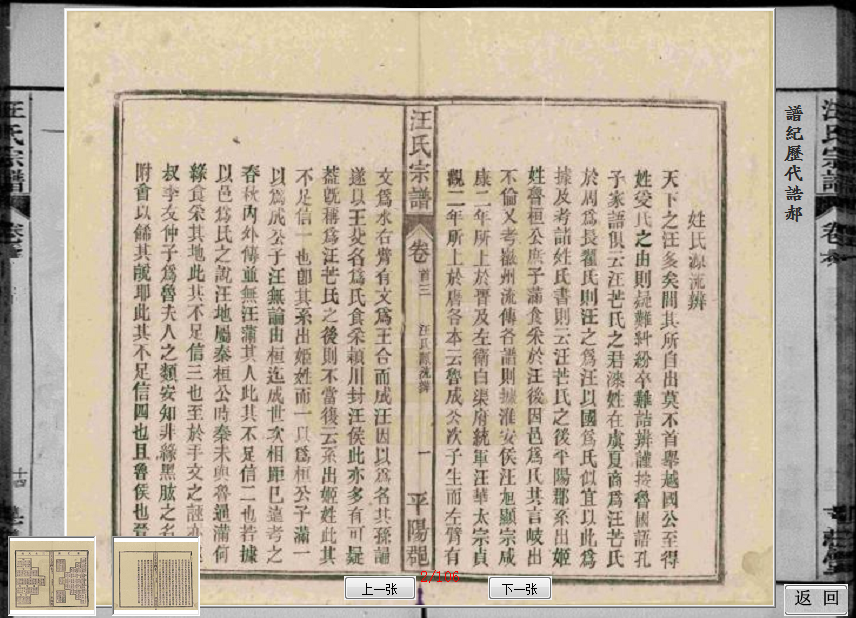 姓氏源流辨
天下之汪多矣間其所自出莫不首舉越國公至得
姓受氏之由則疑難糾紛卒難詰辨謹按魯國語孔
子家語俱云汪芒氏之君漆姓在虞夏商爲汪芒氏
於周爲長翟氏則汪之爲汪以國爲氏似宜以此爲
據及考諸姓氏書則云汪芒氏之後平陽郡系出姬
姓魯桓公庶子滿食采於汪後因邑爲氏其言岐出
不倫又考徽州流傳各譜則據淮安侯汪旭顯宗咸
康二年所上於晋及左衛白渠府統軍汪華太宗貞
觀二年所上於唐各本云魯成公次子生而左臂有
汪氏宗譜
卷首三
汪氏源流辨
一
平陽郡
文爲水右臂有文爲王合而成汪因以爲名其孫誦
遂以王父名爲氏食采潁川封汪侯此亦多有可疑
葢旣稱爲汪芒氏之後則不當後云系出姬姓此其
不足信一也卽其系出姬姓而一以爲桓公子滿一
以爲成公子汪無論由桓迄成世次相距已遠考之
春秋內外傳並無汪滿其人此其不足信二也若據
以邑爲氏之說汪地屬秦桓公時秦未與魯通滿何
緣食采其地此其不足信三也至於手文之誣亦
叔季友仲子爲魯夫人之類安知非緣黑肱之名
附會以餙其說耶此其不足信四也且魯侯也
譜紀歷代誥郝
汪氏宗譜
汪氏宗譜
卷
卷
十四
上一张
下一张
返 回